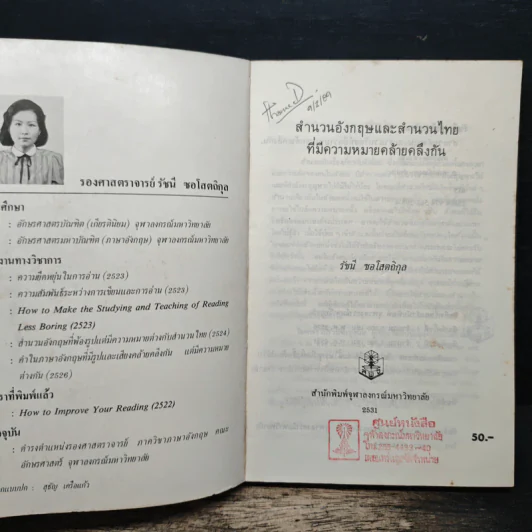 รองศาสตราจารย์ รัชนี ซอโสตถิกุล
ศึกษา
: อักษรศาสตรบัณฑิต (เกียรตินิยม) จุฬาลงกรณ์มหาวิทยาลัย
: อักษรศาสตรมหาบัณฑิต (ภาษาอังกฤษ) จุฬาลงกรณ์มหาวิทยาลัย
งานทางวิชาการ
: ความยืดหยุ่นในการอ่าน (2523)
: ความสัมพันธ์ระหว่างการเขียนและการอ่าน (2523)
: How to Make the Studying and Teaching of Reading
Less Boring (2523)
: สำนวนอังกฤษที่พ้องรูปแต่มีความหมายต่างกับสำนวนไทย (2524)
: คำในภาษาอังกฤษที่มีรูปและเสียงคล้ายคลึงกัน แต่มีความหมาย
ต่างกัน (2526)
ราที่พิมพ์แล้ว
: How to Improve Your Reading (2522)
จุบัน
: ดำรงตำแหน่งรองศาสตราจารย์ ภาควิชาภาษาอังกฤษ คณะ
อักษรศาสตร์ จุฬาลงกรณ์มหาวิทยาลัย
สำนวนอังกฤษและสำนวนไทย
ที่มีความหมายคล้ายคลึงกัน
รัชนี ซอโสตถิกุล
สำนักพิมพ์จุฬาลงกรณ์มหาวิทยาลัย
2531
ศูนย์หนังสือ
จุฬาลงกรณ์มหาวิทยาลัย
50.-